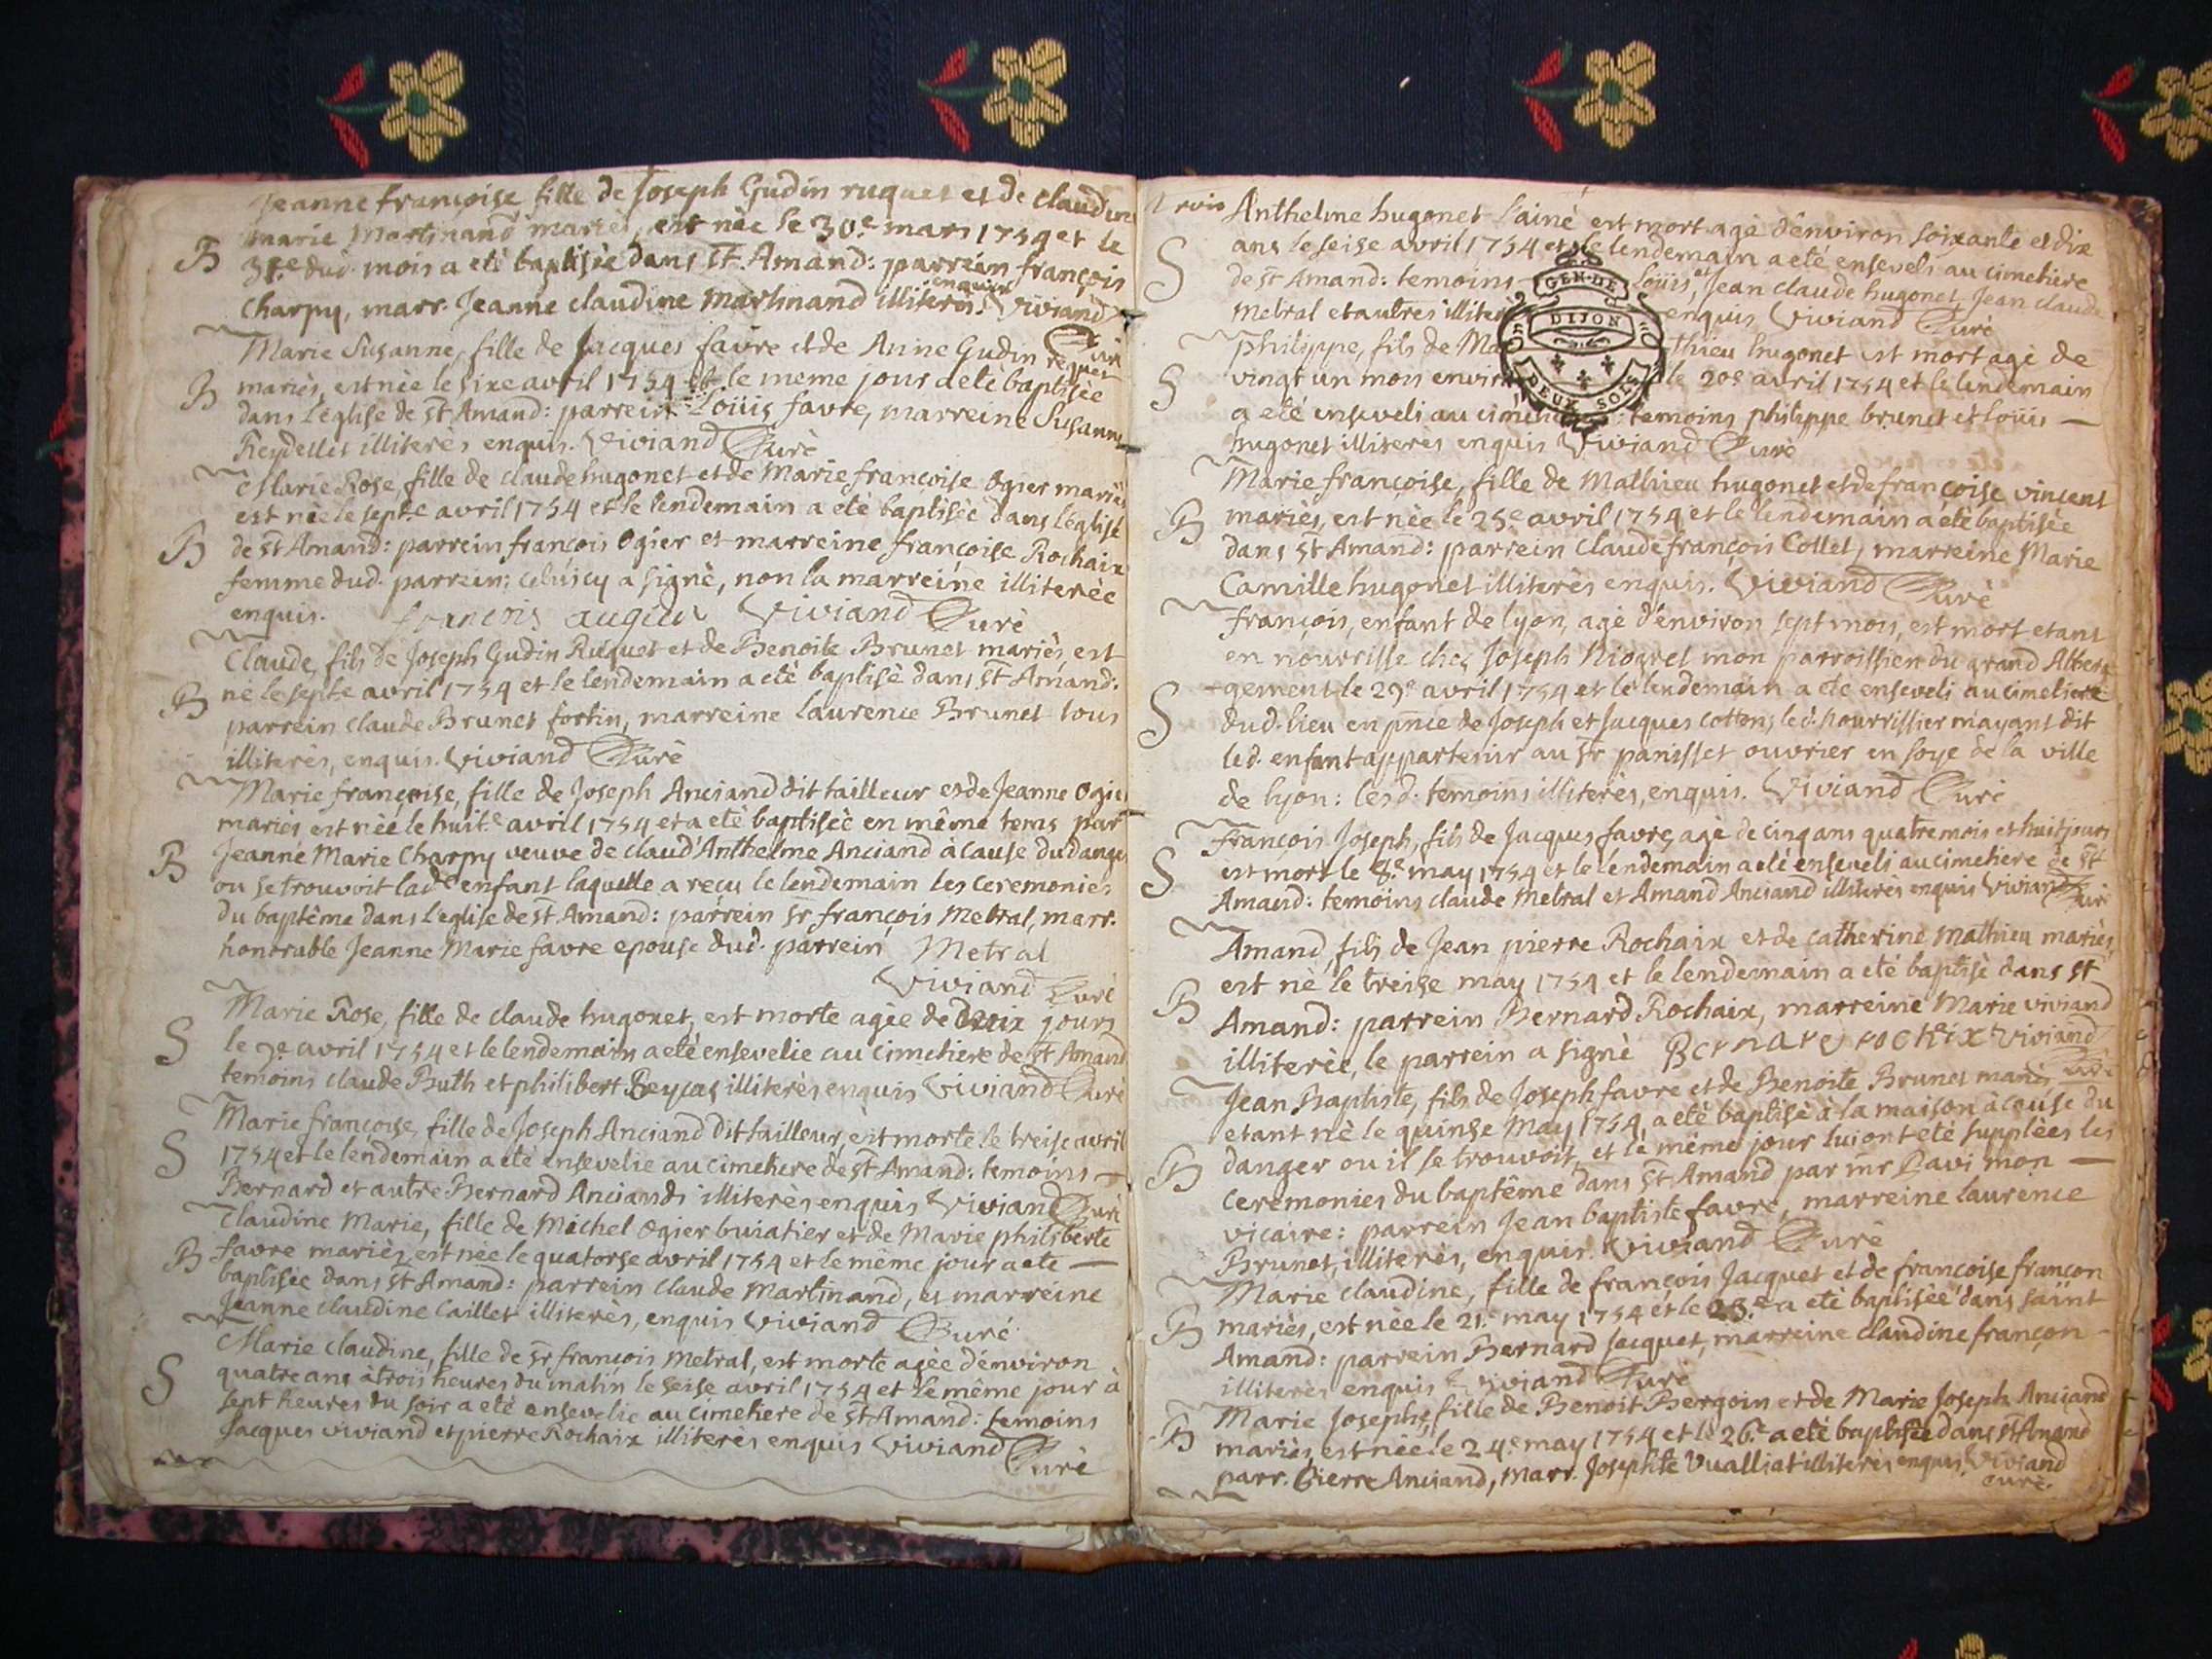 Jeanne françoise fille de Joseph Gudin ruquet et de claudine
marie Martinand mariès, est nèe le 30.e mars 1754 et le
B 31.e dud. mois a etè baptisèe dans st Amand: parrein françois
Charpy, marr. Jeanne claudine Martinand illiterès enquis Viviand
Curè
Marie Susanne, fille de Jacques favre et de Anne Gudin requet
B mariès, est nèe le sixe avril 1754 et le meme jour a etè baptisèe
dans l'èglise de st Amand: parrein Loüis favre, marreine Susanne
Reydellet illiterès enquis. Viviand Curè
Marie Rose, fille de claude hugonet et de Marie françoise Ogier mariès
est nèe le sept.e avril 1754 et le lendemain a etè baptisèe dans l'èglise
B de st Amand: parrein françois Ogier et marreine françoise Rochaix
femme dud. parrein; celuicy a signè, non la marreine illiterèe
enquis. francois augier Viviand Curè
Claude, fils de Joseph Gudin Ruquet et de Benoite Brunet mariès, est
B nè le septe avril 1754 et le lendemain a etè baptisè dans st Amand:
parrein claude Brunet fortin, marreine laurence Brunet tous
illiterès, enquis. Viviand Curè
Marie françoise, fille de Joseph Anciand dit tailleur et de Jeanne Ogier
mariès est nèe le huit.e avril 1754 et a etè baptisèe en même tems par
B Jeanne Marie Charpy veuve de claud'Anthelme Anciand à cause du danger
ou se trouvoit lad.e enfant laquelle a reçu le lendemain les ceremonies
du baptême dans l'eglise de st Amand: parrein sr françois Metral, marr.
honorable Jeanne Marie favre epouse dud. parrein Metral
Viviand Curè
Marie Rose, fille de claude hugonet, est morte agèe de deux jours
S le 9.e avril 1754 et le lendemain a etè ensevelie au cimetiere de st Amand
temoins claude Buth et philibert illiterès enquis Viviand Curè
Marie françoise, fille de Joseph Anciand dit tailleur, est morte le treise avril
S 1754 et le lendemain a etè ensevelie au cimetiere de st Amand: temoins
Bernard et autre Bernard Anciands illiterès enquis Viviand Curè
Claudine Marie, fille de Michel Ogier buiatier et de Marie philiberte
B favre mariès, est nèe le quatorse avril 1754 et le même jour a ete
baptisèe dans st Amand: parrein claude Martinand, et marreine
Jeanne claudine Caillet illiterès, enquis Viviand Curè
Marie claudine, fille de sr francois Metral, est morte agèe d'environ
S quatre ans à trois heures du matin le seise avril 1754 et le même jour à
sept heures du soir a etè ensevelie au cimetiere de st Amand: temoins
Jacques viviand et pierre Rochaix illiterès enquis Viviand
Curè
trois Anthelme hugonet l'ainè est mort agè d'environ soixante et dix
S ans le seise avril 1754 et le lendemain a etè enseveli au cimetiere
de st Amand: temoins Loüis, et Jean claude hugonet, Jean claude
Metral et autres illiter enquis Viviand Curè
philippe, fils de Ma thieu hugonet est mort agè de
S vingt un mois envir le 20e avril 1754 et le lendemain
a etè enseveli au cimetiere temoins philippe brunet et loüis
hugonet illiterès enquis Viviand Curè
GEN. DE
DIJON
DEUX SOLS
Marie françoise, fille de Mathieu hugonet et de françoise vincent
B mariès, est nèe le 25.e avril 1754 et le lendemain a etè baptisèe
dans st Amand: parrein claude françois Collet, marreine Marie
Camille hugonet illiterès enquis. Viviand Curè
françois, enfant de lyon, agè d'environ sept mois, est mort etant
en nourrisse chez Joseph Niogret mon parroissien du grand Abber
S gement le 29e avril 1754 et le lendemain a ete enseveli au cimetiere
dud. lieu en pnce de Joseph et Jacques cottons, led. nourrissier m'ayant dit
led. enfant appartenir au sr panisset ouvrier en soye de la ville
de lyon: lesd. temoins illiterès, enquis. Viviand Curè
François Joseph, fils de Jacques favre, agè de cinq ans quatre mois et huit jours
S est mort le 8.e may 1754 et le lendemain a etè enseveli au cimetiere de st
Amand: temoins claude Metral et Amand Anciand illiterès enquis Viviand Curè
Amand, fils de Jean pierre Rochaix et de catherine Mathieu mariès,
est nè le treise may 1754 et le lendemain a etè baptisè dans st
B Amand: parrein Bernard Rochaix, marreine Marie viviand
illiterèe, le parrein a signè Bernard rochix Viviand
Curè
Jean Baptiste, fils de Joseph favre et de Benoite Brunet mariès
etant nè le quinse May 1754, a etè baptisè à la maison à cause du
B danger ou il se trouvoit, et le même jour lui ont etè supplèes les
ceremonies du baptême dans st Amand par mr Ravi mon
vicaire: parrein Jean baptiste favre, marreine laurence
Brunet, illiterès, enquis. Viviand Curè
Marie claudine, fille de françois Jacquet et de françoise françon
B mariès, est nèe le 21.e may 1754 et le 23.e a etè baptisèe dans saint
Amand: parrein Bernard Jacquet, marreine claudine françon
illiterès enquis Viviand Curè
Marie Josephe, fille de Benoit Bergoin et de Marie Joseph Anciand
B mariès, est nèe le 24.e may 1754 et le 26.e a etè baptisèe dans st Amand
parr. Pierre Anciand, Marr. Josephte Vualliat illiterès enquis, Viviand
curè.